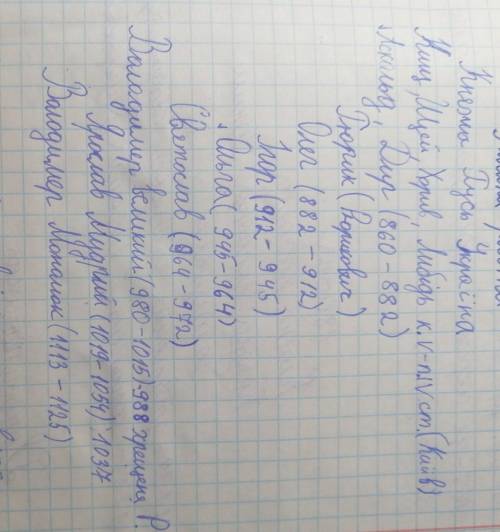 Княжа Русь Україна
Кий, Щей, Хорив, Либідь к. V - п. IV ст. (Київ)
Аскольд, Дир (860 - 882)
Рюрик
Олег (882 - 912)
Ігор (912 - 945)
Ольга (945 - 964)
Святослав (964 - 972)
Володимер Великий (980 - 1015) - 988 хрещеня Р.
Ярослав Мудрий (1019 - 1054) 1037
Володимер Мономах (1113 - 1125)